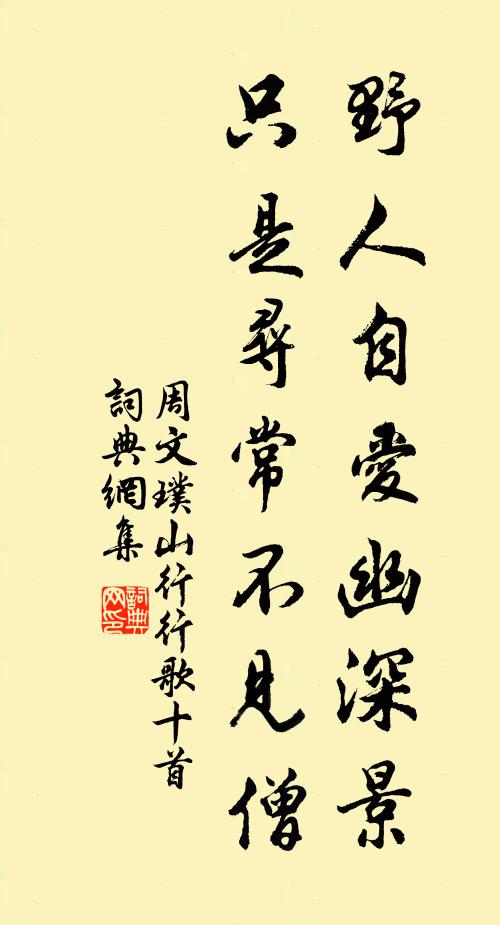 野人自愛幽深景
只是尋常不見僧
周文璞山行行歌十首
詞典網集
詞典
网印